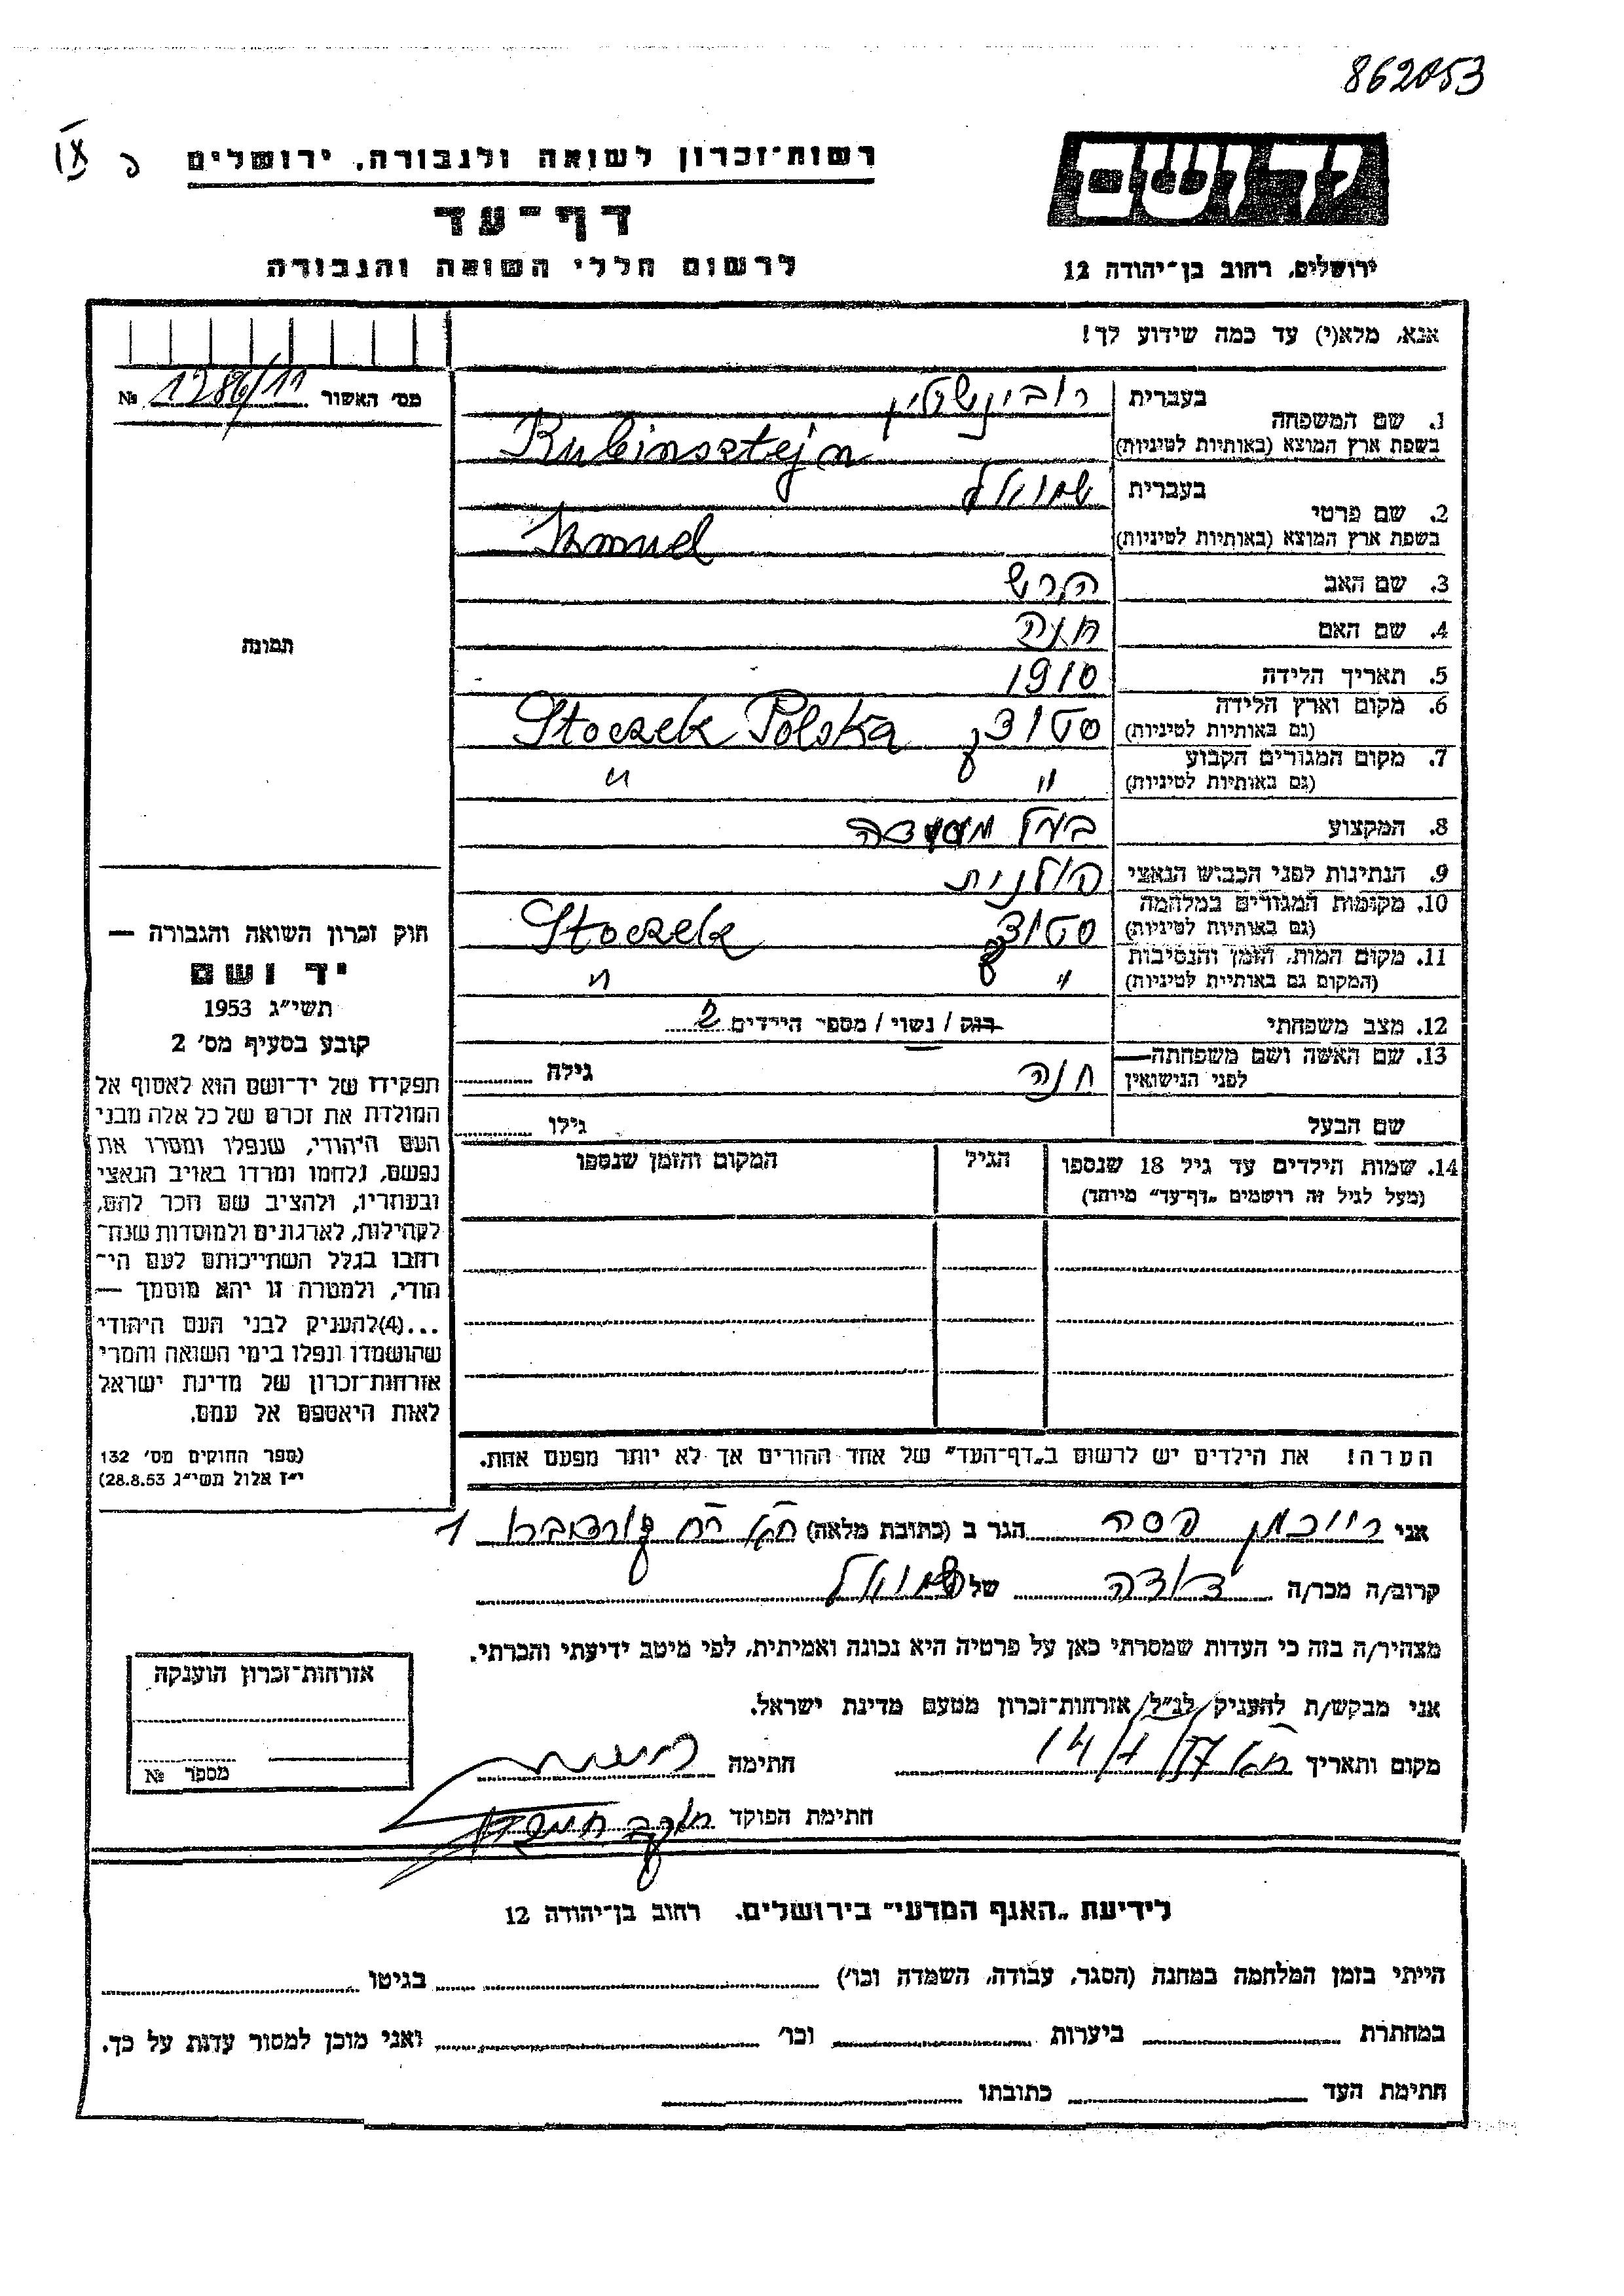 862053
רשות־זכרון לשואה ולגבורה, ירושלים
דף־עד
לרשום חללי השואה והגבורה
יד ושם
ירושלים, רחוב בן־יהודה 12
אנא, מלא(י) עד כמה שידוע לך!
מס' האשור № 1286/11
1. שם המשפחה בעברית רובינשטין
בשפת ארץ המוצא (באותיות לטיניות) Rubinsztejn
2. שם פרטי בעברית שמואל
בשפת ארץ המוצא (באותיות לטיניות) Szmuel
3. שם האב הרש
4. שם האם חנה
5. תאריך הלידה 1910
6. מקום וארץ הלידה (גם באותיות לטיניות) סטוצק Stoczek Polska
7. מקום המגורים הקבוע (גם באותיות לטיניות) " "
8. המקצוע בעל
9. הנתינות לפני הכבוש הנאצי פולנית
10. מקומות המגורים במלחמה (גם באותיות לטיניות) סטוצק Stoczek
11. מקום המות, הזמן והנסיבות (המקום גם באותיות לטיניות) " "
12. מצב משפחתי רוק / נשוי / מספר הילדים 2
13. שם האשה ושם משפחתה לפני הנישואין חנה גילה
שם הבעל גילו
14. שמות הילדים עד גיל 18 שנספו הגיל המקום והזמן שנספו
(מעל לגיל זה רושמים „דף־עד" מיוחד)
הערה! את הילדים יש לרשום ב„דף־העד" של אחד ההורים אך לא יותר מפעם אחת.
תמונה
חוק זכרון השואה והגבורה —
יד ושם
תשי"ג 1953
קובע בסעיף מס' 2
תפקידו של יד־ושם הוא לאסוף אל
המולדת את זכרם של כל אלה מבני
העם היהודי, שנפלו ומסרו את
נפשם, נלחמו ומרדו באויב הנאצי
ובעוזריו, ולהציב שם וזכר להם,
לקהילות, לארגונים ולמוסדות שנח־
רחבו בגלל השתייכותם לעם הי־
הודי, ולמטרה זו יהא מוסמך —
...(4)להעניק לבני העם היהודי
שהושמדו ונפלו בימי השואה והמרי
אזרחות־זכרון של מדינת ישראל
לאות היאספם אל עמם.
(ספר החוקים מס' 132
י"ז אלול תשי"ג 28.8.53)
אני רייכמן פסה הגר ב (כתובת מלאה) רח 1
קרוב/ה מכר/ה דודה של שמואל
מצהיר/ה בזה כי העדות שמסרתי כאן על פרטיה היא נכונה ואמיתית, לפי מיטב ידיעתי והכרתי.
אני מבקש/ת להעניק לנ"ל/ אזרחות־זכרון מטעם מדינת ישראל.
מקום ותאריך חתימה
חתימת הפוקד
אזרחות־זכרון הוענקה
מספר №
לידיעת „האגף המדעי" בירושלים, רחוב בן־יהודה 12
הייתי בזמן המלחמה במחנה (הסגר, עבודה, השמדה וכו') בגיטו
במחתרת ביערות וכו' ואני מוכן למסור עדות על כך.
חתימת העד כתובתו